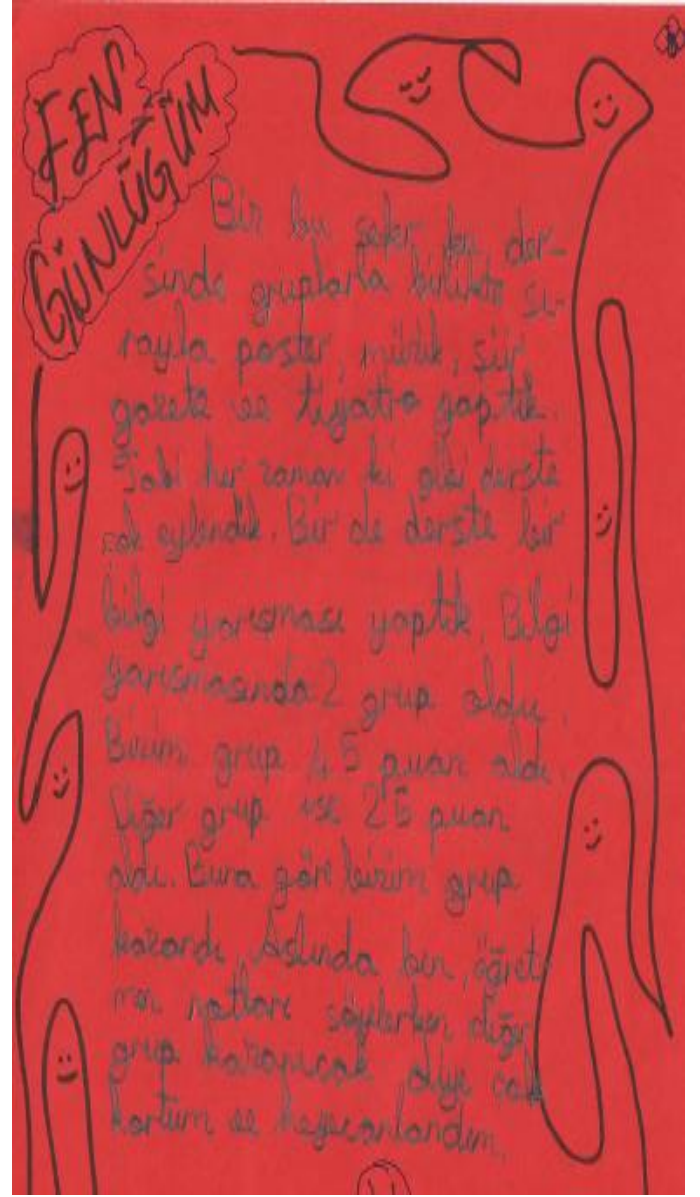 FEN
GÜNLÜĞÜM
Biz bu sefer fen der-
sinde gruplarla birlikte sı-
rayla poster, müzik, şiir
gazete ve tiyatro yaptık.
Tabi her zaman ki gibi derste
çok eylendik. Bir de derste bir
bilgi yarışması yaptık. Bilgi
yarışmasında 2 grup oldu.
Bizim grup 45 puan aldı.
Diğer grup ise 25 puan
aldı. Buna göre bizim grup
kazandı. Aslında ben, öğret-
men notları söylerken diğer
grup kazanıcak diye çok
korktum ve heyecanlandım.